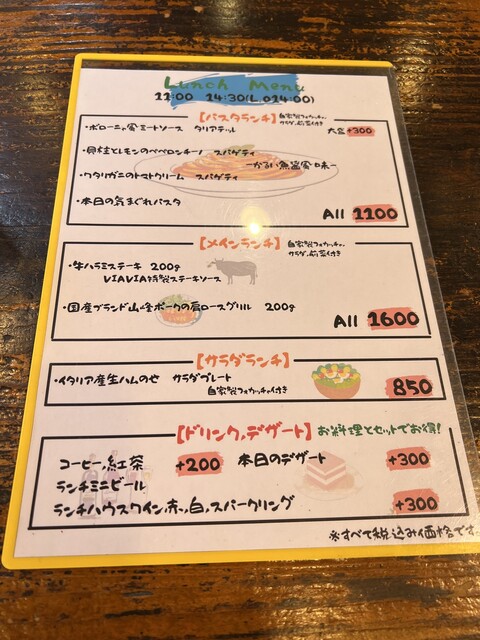 Lunch Menu
11:00 14:30(L.O14:00)
【パスタランチ】自家製フォカッチャ、
サラダ、前菜付き
・ボローニャ風ミートソース タリアテッレ 大盛+300
・貝柱とレモンのペペロンチーノ スパゲティ
ーかるい魚醤風味ー
・ワタリガニのトマトクリーム スパゲティ
・本日の気まぐれパスタ
All 1200
【メインランチ】自家製フォカッチャ、
サラダ、前菜付き
・牛ハラミステーキ 200g
VIAVIA特製ステーキソース
・国産ブランド山金ポークの肩ロースグリル 200g
All 1600
【サラダランチ】
・イタリア産生ハムのせ サラダプレート
自家製フォカッチャ付き
850
【ドリンク,デザート】お料理とセットでお得!
コーヒー,紅茶 +200 本日のデザート +300
ランチミニビール
ランチハウスワイン,赤,白,スパークリング +300
※すべて税込み価格です